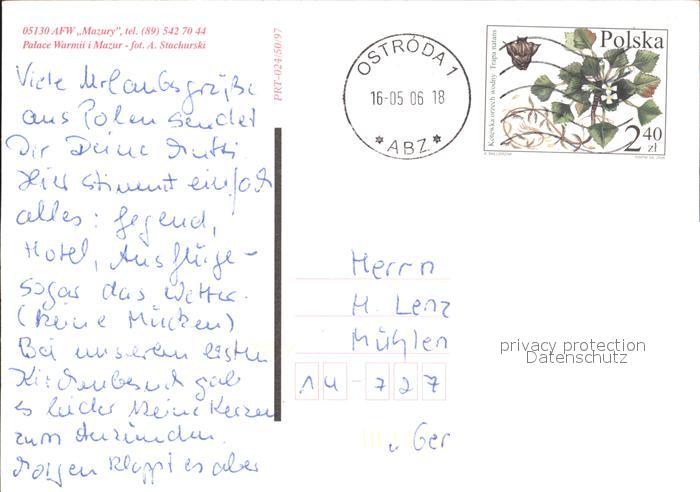 05130 AFW „Mazury”, tel. (89) 542 70 44
Palace Warmii i Mazur - fot. A. Stachurski
PRT-024/50/97
Viele Urlaubsgrüße
aus Polen sendet
Dir Deine Mutti.
Hier stimmt einfach
alles: Gegend,
Hotel, Ausflüge -
sogar das Wetter.
(keine Mücken)
Bei unserem ersten
Kirchenbesuch gab
es leider keine Kerzen
zum Anzünden.
Morgen klappt es aber
OSTRÓDA 1
16-05 06 18
* ABZ *
Polska
Kotewka orzech wodny Trapa natans
2 40
zł
Herrn
M. Lenz
Mühlen
14-727
Ger
privacy protection
Datenschutz